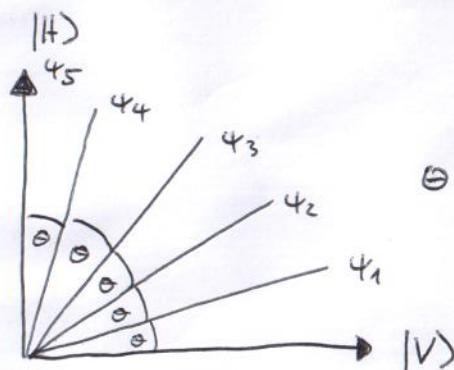 |H⟩
ψ5
ψ4
ψ3
ψ2
ψ1
θ
θ
θ
θ
θ
θ
|V⟩